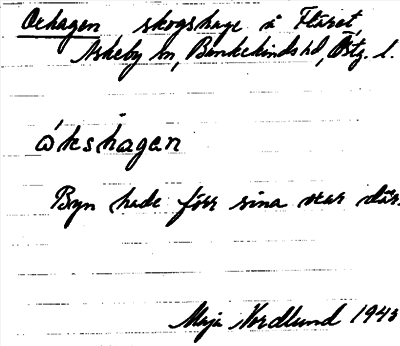 Oxhagen skogshage i Fläret,
Askeby sn, Bankekinds hd, Östg. l.
ókshagen
Byn hade förr sina oxar där.
Maja Nordlund 1943